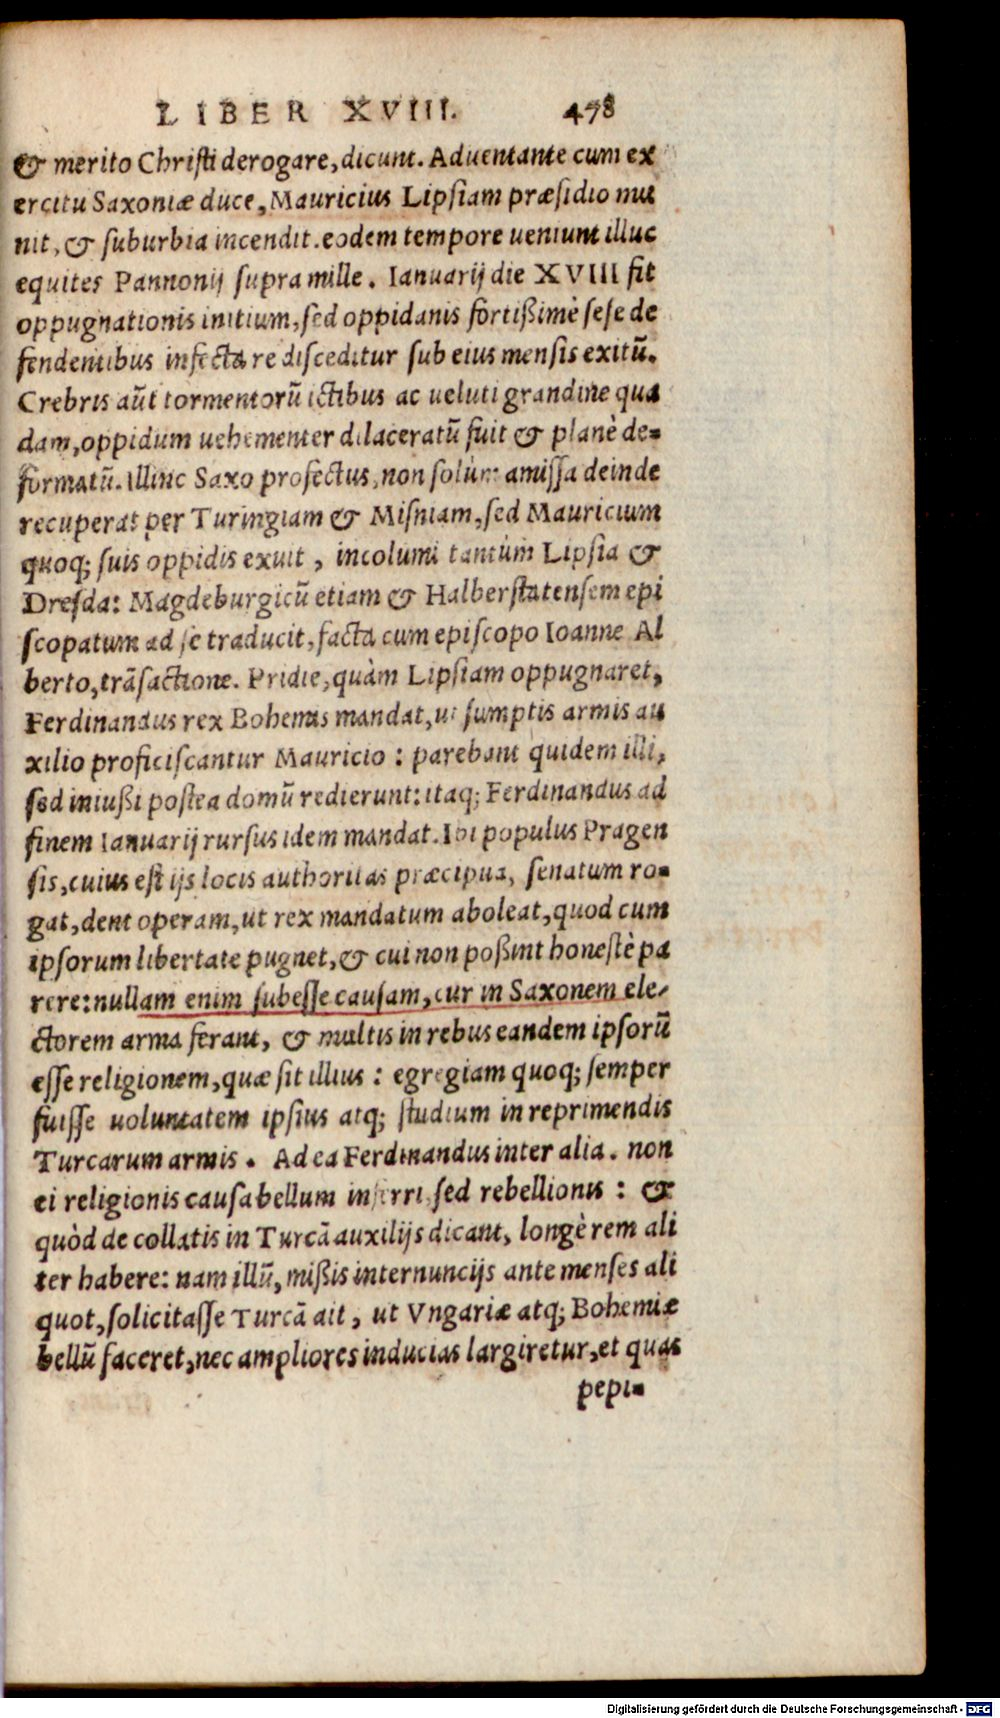 LIBER XVIII. 478
& merito Christi derogare, dicunt. Aduentante cum ex
ercitu Saxoniæ duce, Mauricius Lipsiam præsidio mu
nit, & suburbia incendit. eodem tempore ueniunt illuc
equites Pannonij supra mille. Ianuarij die XVIII fit
oppugnationis initium, sed oppidanis fortißimè sese de
fendentibus infecta re disceditur sub eius mensis exitũ.
Crebris aũt tormentorũ ictibus ac ueluti grandine qua
dam, oppidum uehementer dilaceratũ fuit & planè de-
formatũ. Illinc Saxo profectus, non solùm amissa deinde
recuperat per Turingiam & Misniam, sed Mauricium
quoq; suis oppidis exuit, incolumi tantùm Lipsia &
Dresda: Magdeburgicũ etiam & Halberstatensem epi
scopatum ad se traducit, facta cum episcopo Ioanne Al
berto, trãsactione. Pridie, quàm Lipsiam oppugnaret,
Ferdinandus rex Bohemis mandat, ut sumptis armis au
xilio proficiscantur Mauricio: parebant quidem illi,
sed iniußi postea domũ redierunt: itaq; Ferdinandus ad
finem Ianuarij rursus idem mandat. Ibi populus Pragen
sis, cuius est ijs locis authoritas præcipua, senatum ro-
gat, dent operam, ut rex mandatum aboleat, quod cum
ipsorum libertate pugnet, & cui non poßint honestè pa
rere: nullam enim subesse causam, cur in Saxonem ele-
ctorem arma ferant, & multis in rebus eandem ipsorũ
esse religionem, quæ sit illius: egregiam quoq; semper
fuisse uoluntatem ipsius atq; studium in reprimendis
Turcarum armis. Ad ea Ferdinandus inter alia. non
ei religionis causa bellum inferri sed rebellionis: &
quòd de collatis in Turcã auxilijs dicant, longè rem ali
ter habere: nam illũ, mißis internuncijs ante menses ali
quot, solicitasse Turcã ait, ut Vngariæ atq; Bohemiæ
bellũ faceret, nec ampliores inducias largiretur, et quas
pepi-
Digitalisierung gefördert durch die Deutsche Forschungsgemeinschaft - DFG